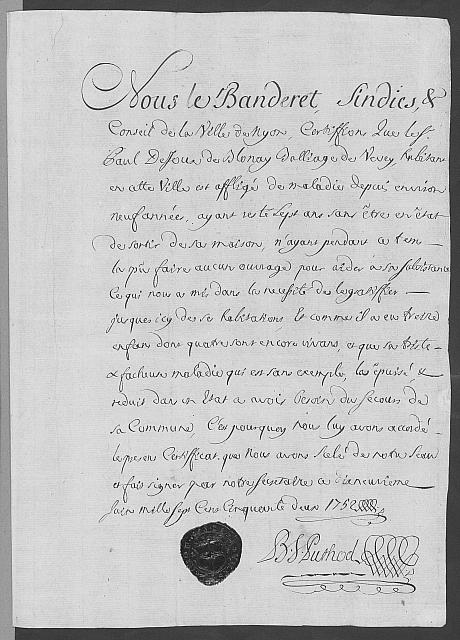 Nous le Banderet, Sindics, &
Conseil de la Ville de Nyon, Certiffions Que le Sr.
Paul Dejoux de Blonay Balliage de Vevey habitant
en cette Ville est affligé de maladie depui environ
neuf années, ayant resté Sept ans sans être en état
de sortir de sa maison, n'ayant pendant ce tem
là pû faire aucun ouvrage pour aider à sa subsistance
Ce qui nous a mis dans la necessité de le gratiffier
jusques icy de ses habitations Et comme il a eu treize
enfans dont quatre sont encore vivans, et que sa triste
& facheuse maladie qui est sans exemple, la épuisé, &
reduit dans un Etat a avoir besoin du Secours de
sa Commune, C'est pourquoy nous luy avons accordé
le present Certifficat, que Nous avons Scelé de notre Seau
et fait signer par notre Secretaire ce dixneuvieme
Juin mille Sept Cens Cinquante deux 1752